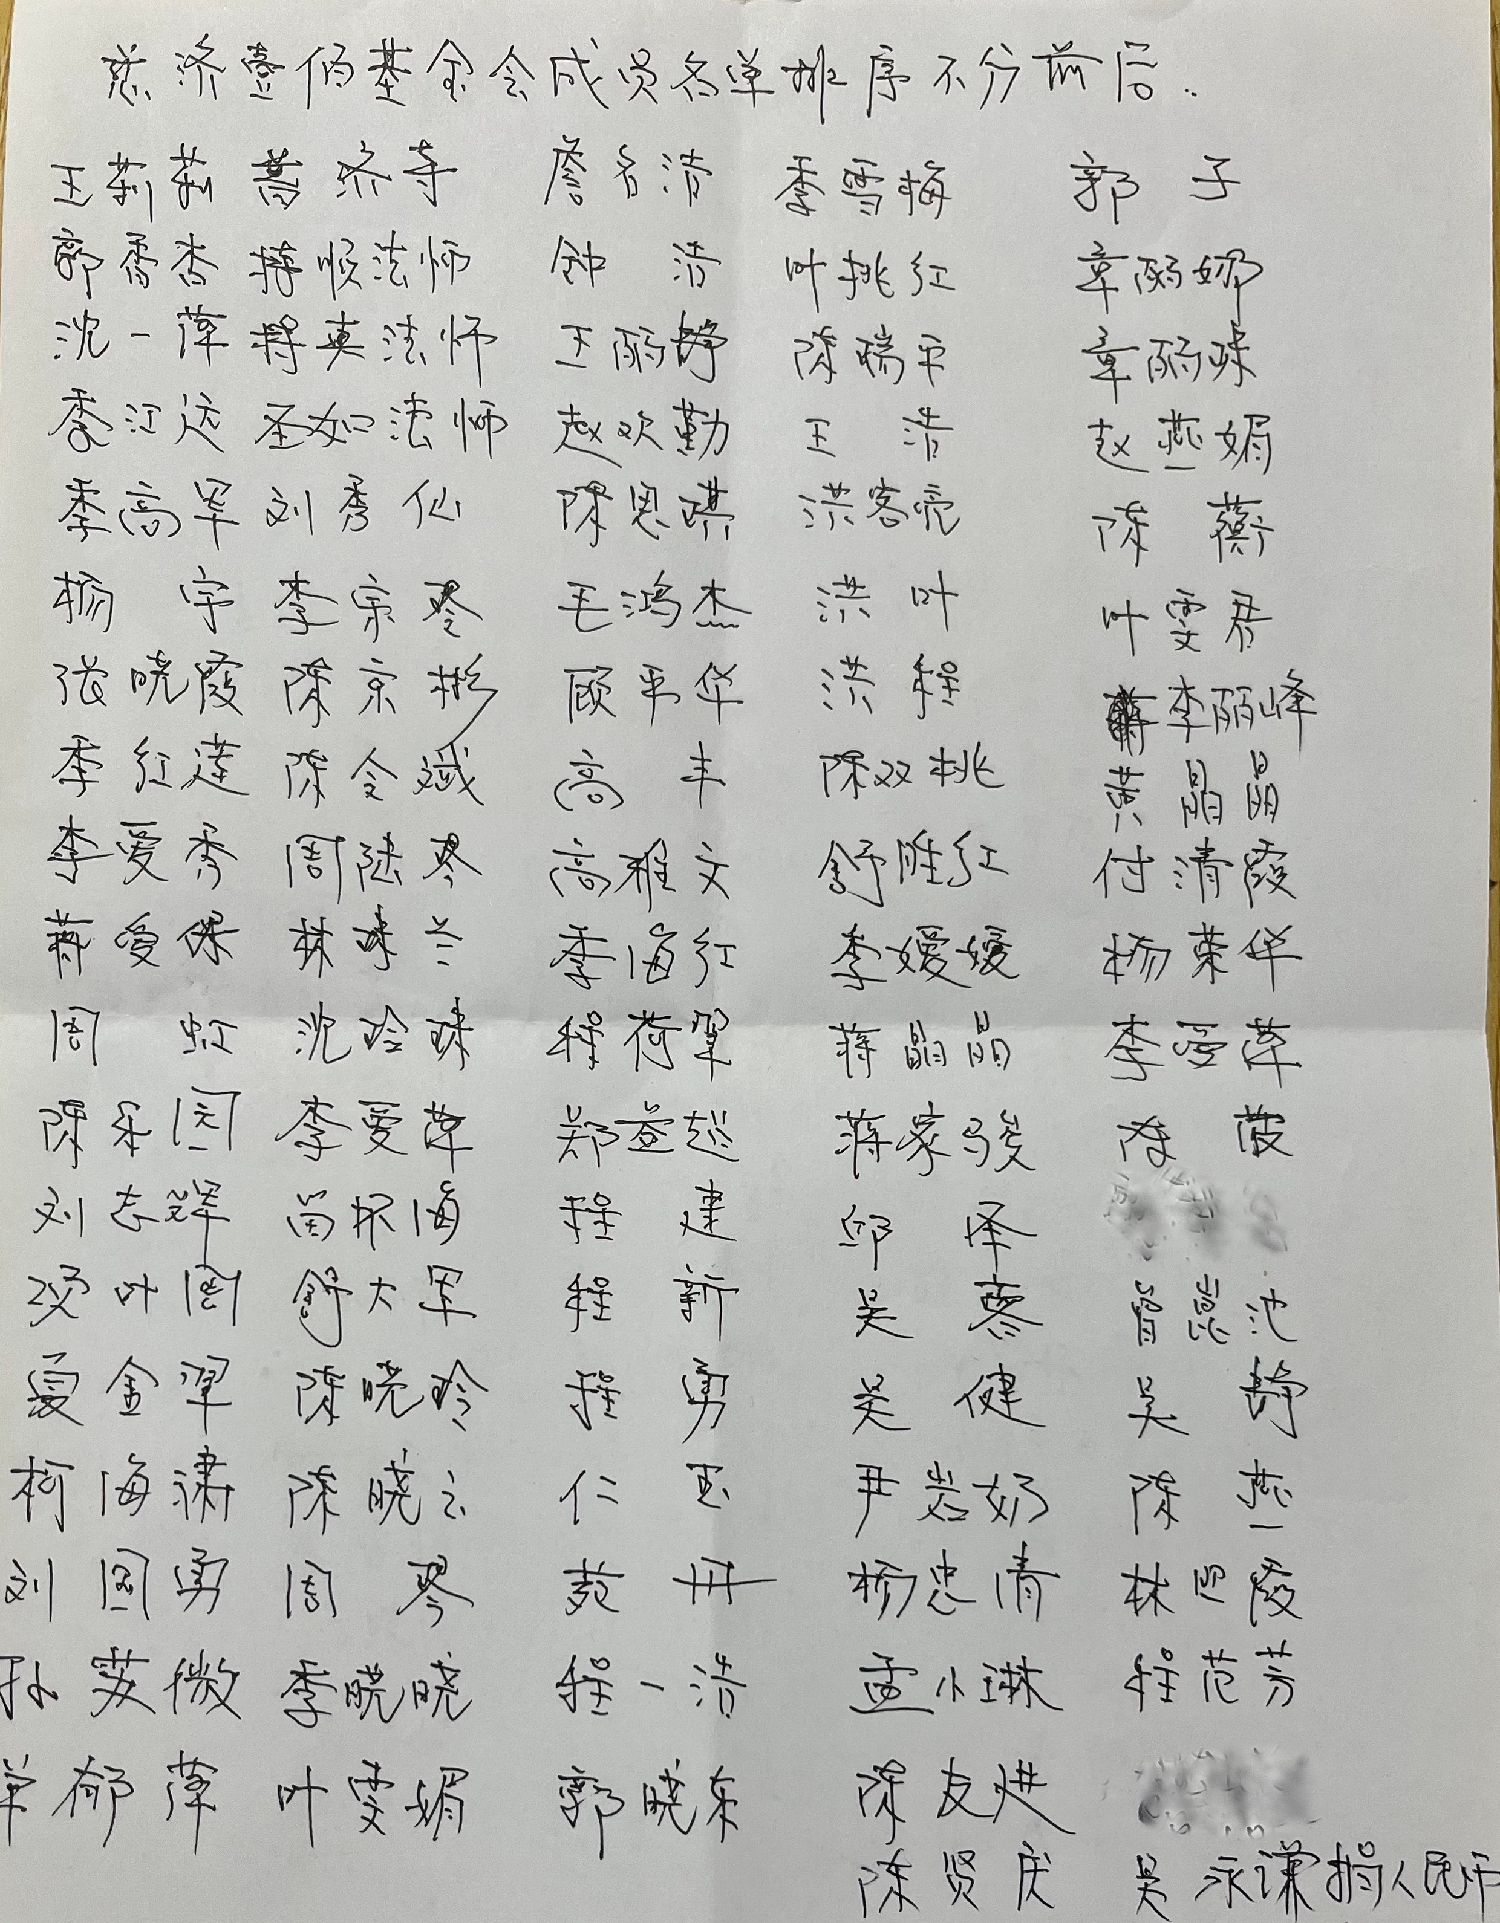 慈济壹佰基金会成员名单排序不分前后..
王莉莉 普济寺 詹名清 李雪梅 郭子
郭香杏 持顺法师 钟洁 叶挑红 章丽娜
沈一萍 持真法师 王丽静 陈瑞平 章丽珠
季江达 圣如法师 赵欢勤 王浩 赵燕娟
季高军 刘秀仙 陈思琪 洪客亮 陈蘅
杨宇 李宗琴 毛鸿杰 洪叶 叶雯君
张晓霞 陈京彬 顾平华 洪程 李丽峰
季红莲 陈令斌 高丰 陈双桃 黄晶晶
李爱秀 周陆琴 高雅文 舒胜红 付清霞
蒋爱保 林珠兰 季海红 李嫒嫒 杨荣华
周虹 沈玲珠 程荷翠 蒋晶晶 李爱萍
陈乐园 李爱萍 郑益超 蒋家骏 陈葭
刘志辉 苗怀海 程建 邱泽
项叶园 舒大军 程新 吴蓼 曾崑池
夏金翠 陈晓玲 程勇 吴健 吴静
柯海潇 陈晓云 仁玉 尹岩奶 陈燕
刘国勇 周琴 苑丹 杨忠清 林巴霞
孙英微 季晓晓 程一浩 孟小琳 程范芬
单郁萍 叶雯娟 郭晓东 陈友进
陈贤庆 吴永谦捐人民币